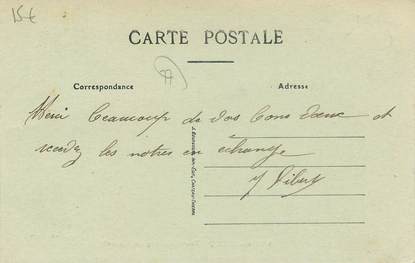 15€
CARTE POSTALE
Correspondance
Adresse
Merci beaucoup de vos bons vœux et
rendez les notres en échange